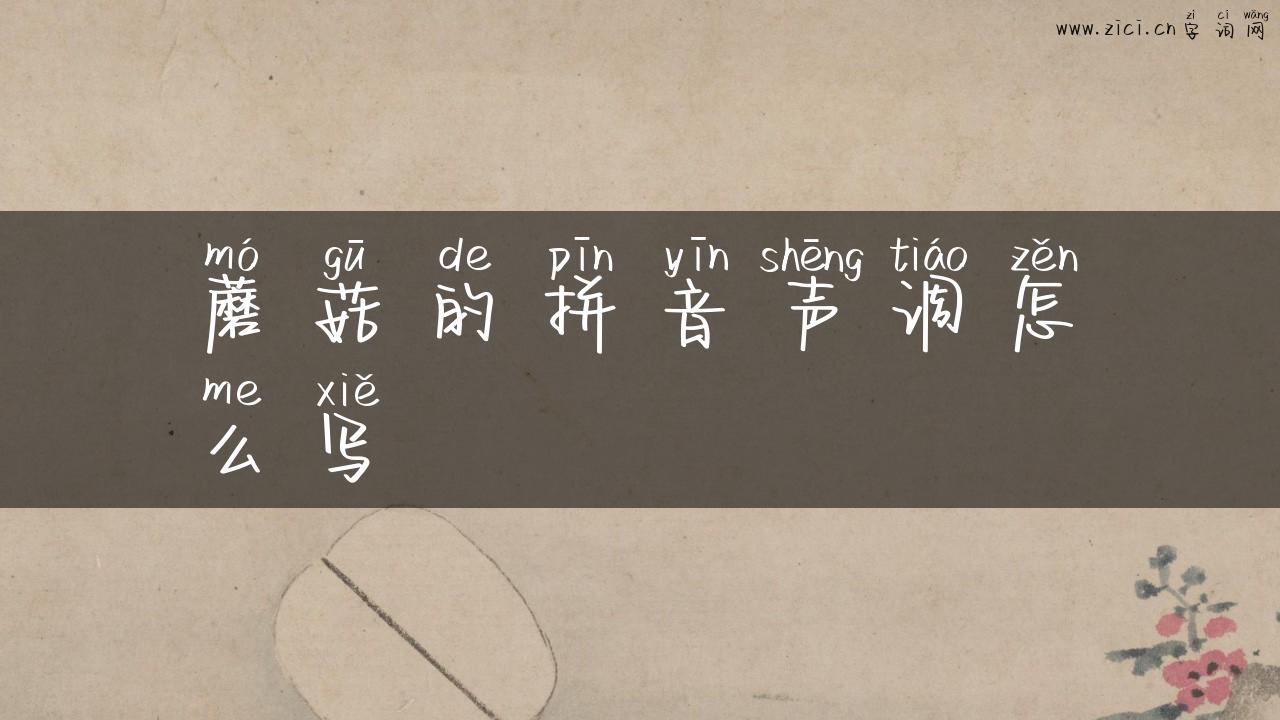 zì cí wǎng
www.zici.cn 字词网
mó gū de pīn yīn shēng tiáo zěn
蘑菇的拼音声调怎
me xiě
么写